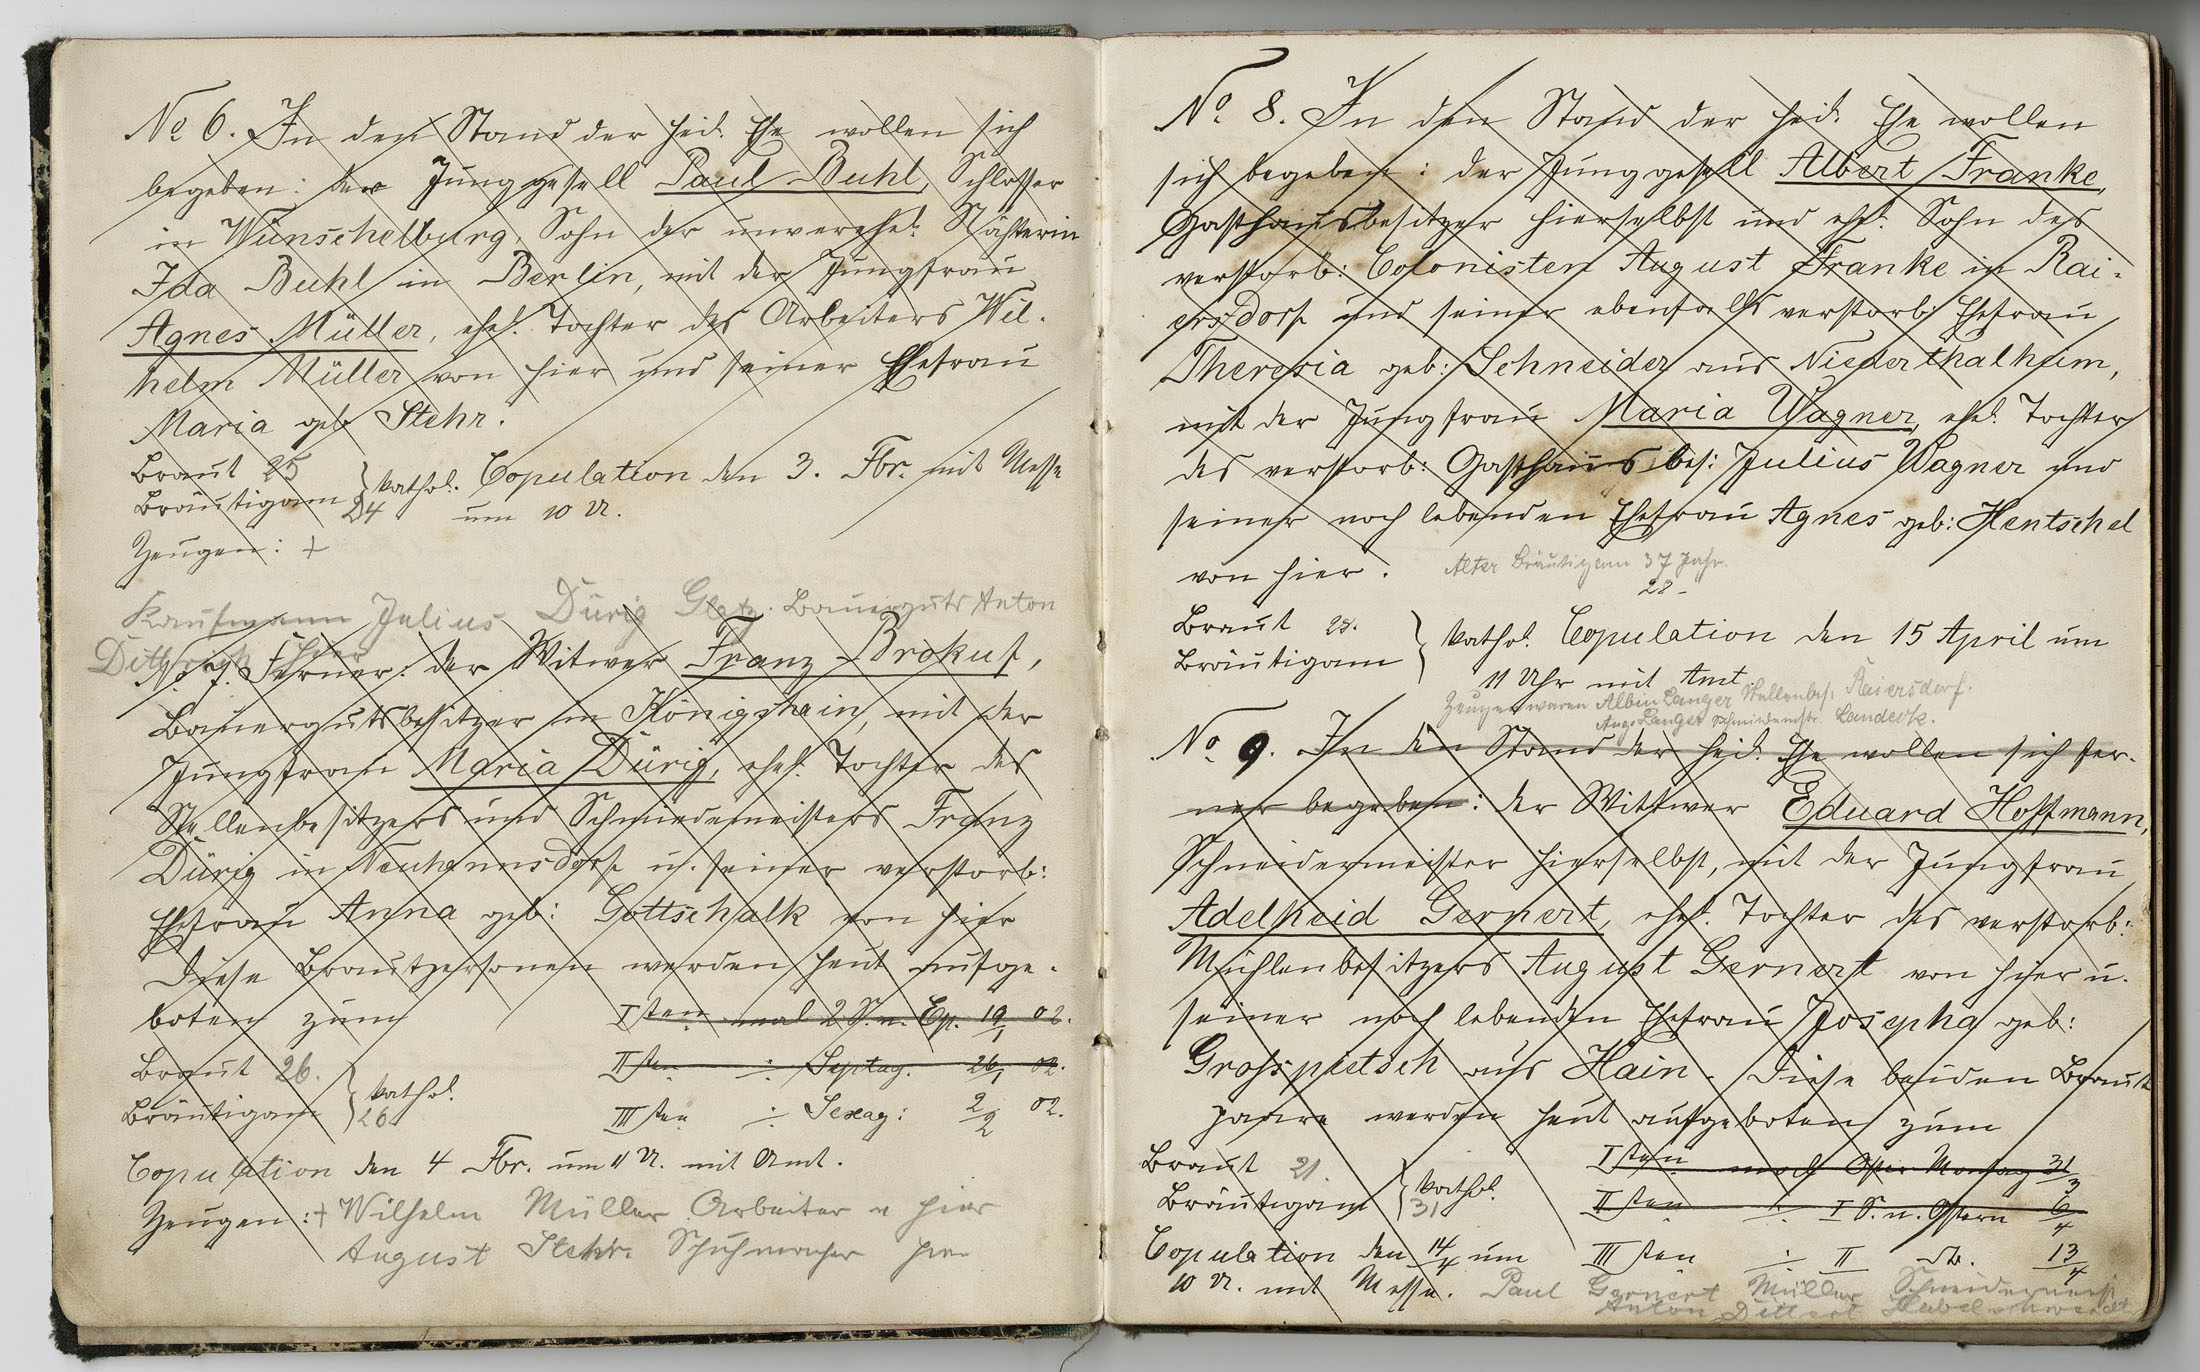 No 6. In den Stand der heil. Ehe wollen sich
begeben: der Junggesell Paul Buhl, Schlosser
in Wünschelburg, Sohn der unverehel.
Ida Buhl in Berlin, mit der Jungfrau
Agnes Müller, ehel. Tochter des Arbeiters Wil-
helm Müller von hier und seiner Ehefrau
Maria geb Stehr.
Braut 25
Bräutigam 24 } kathol. Copulation den 3. Fbr. mit Messe
um 10 U.
Zeugen: +
Kaufmann Julius Dürig Glatz. Bauerguts Anton
hier
No 7. Ferner: der Witwer Franz Brokuf,
Bauergutsbesitzer in Königshain, mit der
Jungfrau Maria Dürig, ehel. Tochter des
Stellenbesitzers und Schmiedemeisters Franz
Dürig in Neuhannsdorf u. seiner verstorb:
Ehefrau Anna geb: Gottschalk von hier
Diese Brautpersonen werden heut aufge-
boten zum Isten mal 2 S. n. Ep. 19/1 02.
Braut 26. IIten ÷ Septag. 26/1 02.
Bräutigam 26 } kathol. IIIten ÷ Sexag: 2/2 02.
Copulation den 4 Fbr. um 11 U. mit Amt.
Zeugen: + Wilhelm Müller Arbeiter v hier
August Stehr. Schuhmacher hier
No 8. In den Stand der heil. Ehe wollen
sich begeben: der Junggesell Albert Franke,
Gasthausbesitzer hierselbst und ehl. Sohn des
verstorb: Colonisten August Franke in Rai-
ersdorf und seiner ebenfalls verstorb: Ehefrau
Theresia geb: Schneider aus Niederthalheim,
mit der Jungfrau Maria Wagner, ehel. Tochter
des verstorb: Gasthausbes: Julius Wagner und
seiner noch lebenden Ehefrau Agnes geb: Hentschel
von hier. Alter Bräutigam 37 Jahr.
28 -
Braut 28.
Bräutigam } kathol. Copulation den 15 April um
11 Uhr mit Amt.
Zeugen waren Albin Langer Stellenbes. Raiersdorf.
Aug. Langer Schmiedemstr. Landeck.
No 9. In den Stand der heil. Ehe wollen sich fer-
ner begeben: der Wittwer Eduard Hoffmann,
Schneidermeister hierselbst, mit der Jungfrau
Adelheid Gernert, ehel. Tochter des verstorb:
Mühlenbesitzers August Gernert von hier u.
seiner noch lebenden Ehefrau Josepha geb:
Grosspietsch aus Hain. Diese beiden Braut
paare werden heut aufgeboten zum
Braut 21. Isten mal Oster Montag 31/3
Bräutigam 31 } kathol. IIten ÷ I S. n. Ostern 6/4
Copulation den 14/4 um IIIten ÷ II 13/4
10 U. mit Messe. Paul Gernert Müller
Anton Dittert Habelschwerdt